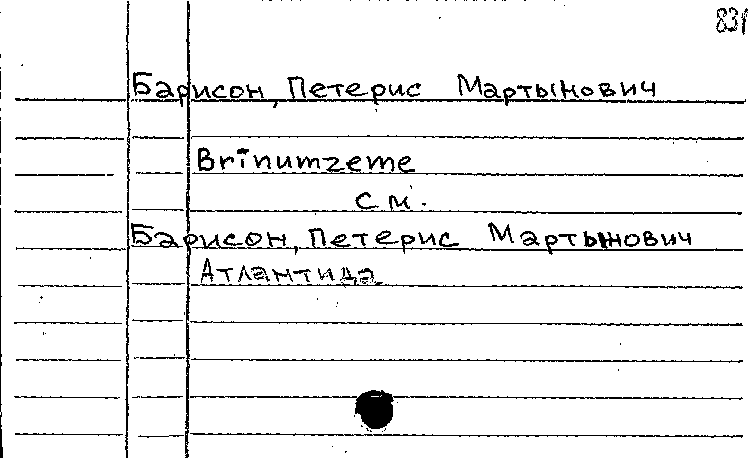 831
Барисон, Петерис Мартынович
Brīnumzeme
см.
Барисон, Петерис Мартынович
Атлантида